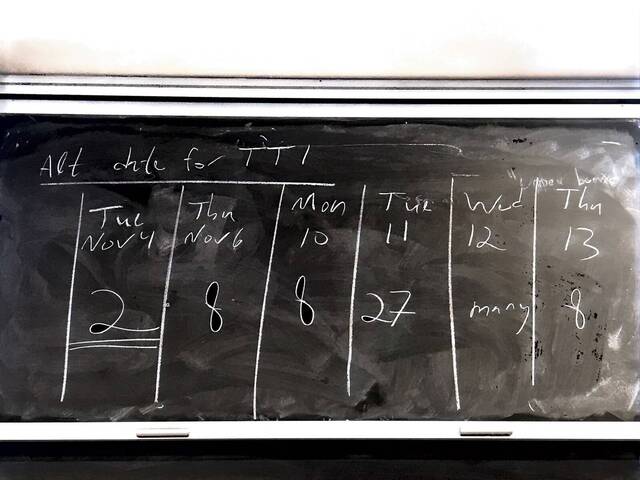 Alt date for TT1
Tue Thu Mon Tue Wed Thu
Nov 4 Nov 6 10 11 12 13
2 8 8 27 many 8